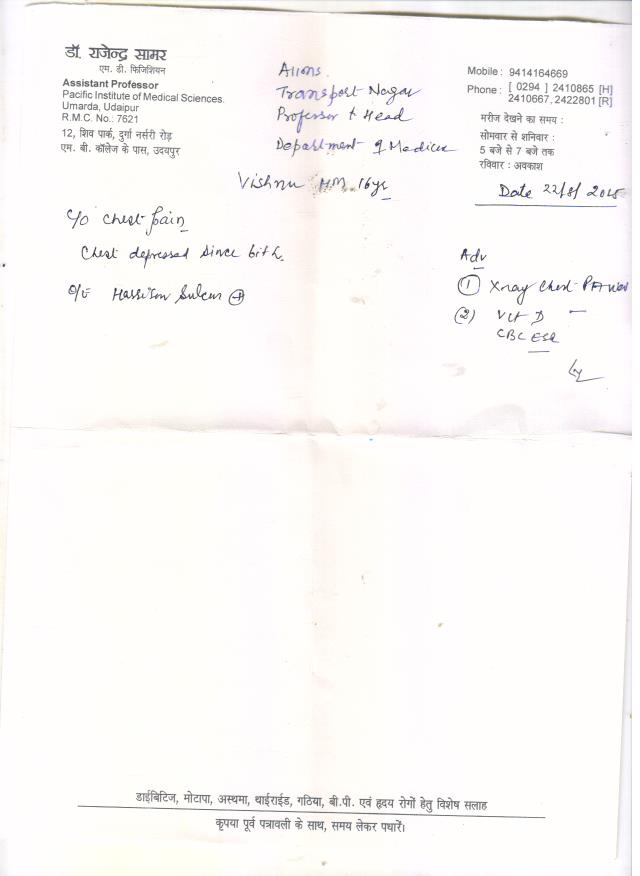 डॉ. राजेन्द्र सामर
एम. डी. फिजिशियन
Assistant Professor
Pacific Institute of Medical Sciences.
Umarda, Udaipur
R.M.C. No.: 7621
12, शिव पार्क, दुर्गा नर्सरी रोड़
एम. बी. कॉलेज के पास, उदयपुर
Transport Nagar
Professor & Head
Department of
Mobile : 9414164669
Phone : [ 0294 ] 2410865 [H]
2410667, 2422801 [R]
मरीज देखने का समय :
सोमवार से शनिवार :
5 बजे से 7 बजे तक
रविवार : अवकाश
Vishnu 16yr
Date 22/8/
C/O Chest pain
Chest depressed since
O/E Sulcus +
Adv
① Xray Chest PA
② Vit D
CBC ESR
डाईबिटिज, मोटापा, अस्थमा, थाईराईड, गठिया, बी.पी. एवं हृदय रोगों हेतु विशेष सलाह
कृपया पूर्व पत्रावली के साथ, समय लेकर पधारें।